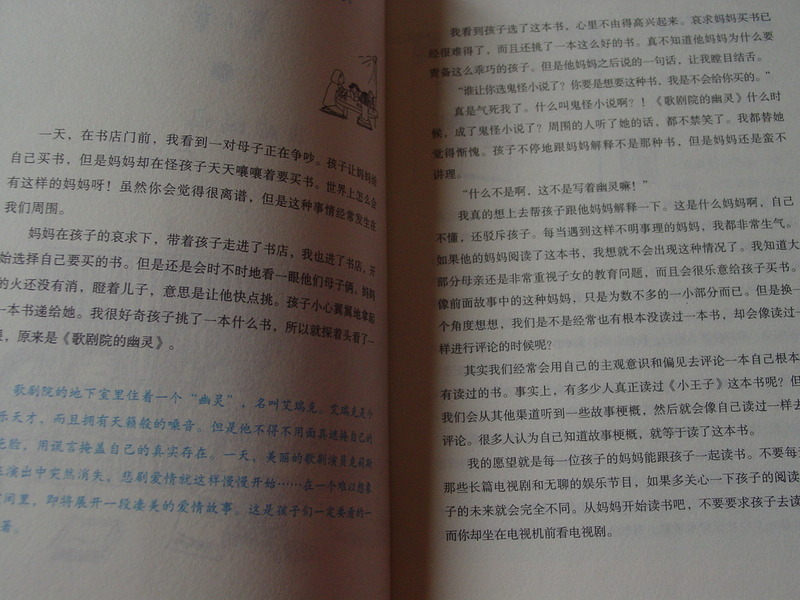 一天，在书店门前，我看到一对母子正在争吵。孩子让妈妈给
自己买书，但是妈妈却在怪孩子天天嚷嚷着要买书。世界上怎么会
有这样的妈妈呀！虽然你会觉得很离谱，但是这种事情经常发生在
我们周围。
妈妈在孩子的哀求下，带着孩子走进了书店，我也进了书店，开
始选择自己要买的书。但是还是会时不时地看一眼他们母子俩。妈妈
的火还没有消，瞪着儿子，意思是让他快点挑。孩子小心翼翼地拿起
一本书递给她。我很好奇孩子挑了一本什么书，所以就探着头看了一
，原来是《歌剧院的幽灵》。
歌剧院的地下室里住着一个“幽灵”，名叫艾瑞克。艾瑞克是个
乐天才，而且拥有天籁般的嗓音。但是他不得不用面具遮掩自己的
脸，用谎言掩盖自己的真实存在。一天，美丽的歌剧演员克莉斯
在演出中突然消失，悲剧爱情就这样慢慢开始……在一个难以想象
间里，即将展开一段凄美的爱情故事。这是孩子们一定要看的一
著。
我看到孩子选了这本书，心里不由得高兴起来。哀求妈妈买书已
经很难得了，而且还挑了一本这么好的书。真不知道他妈妈为什么要
责备这么乖巧的孩子。但是他妈妈之后说的一句话，让我瞠目结舌。
“谁让你选鬼怪小说了？你要是想要这种书，我是不会给你买的。”
真是气死我了。什么叫鬼怪小说啊？！《歌剧院的幽灵》什么时
候，成了鬼怪小说了？周围的人听了她的话，都不禁笑了。我都替她
觉得惭愧。孩子不停地跟妈妈解释不是那种书，但是妈妈还是蛮不
讲理。
“什么不是啊，这不是写着幽灵嘛！”
我真的想上去帮孩子跟他妈妈解释一下。这是什么妈妈啊，自己
不懂，还驳斥孩子。每当遇到这样不明事理的妈妈，我都非常生气。
如果他的妈妈阅读了这本书，我想就不会出现这种情况了。我知道大
部分母亲还是非常重视子女的教育问题，而且会很乐意给孩子买书。
像前面故事中的这种妈妈，只是为数不多的一小部分而已。但是换一
个角度想想，我们是不是经常也有根本没读过一本书，却会像读过一
样进行评论的时候呢？
其实我们经常会用自己的主观意识和偏见去评论一本自己根本
有读过的书。事实上，有多少人真正读过《小王子》这本书呢？但
我们会从其他渠道听到一些故事梗概，然后就会像自己读过一样去
评论。很多人认为自己知道故事梗概，就等于读了这本书。
我的愿望就是每一位孩子的妈妈能跟孩子一起读书。不要每天
那些长篇电视剧和无聊的娱乐节目，如果多关心一下孩子的阅读
子的未来就会完全不同。从妈妈开始读书吧，不要要求孩子去读
而你却坐在电视机前看电视剧。